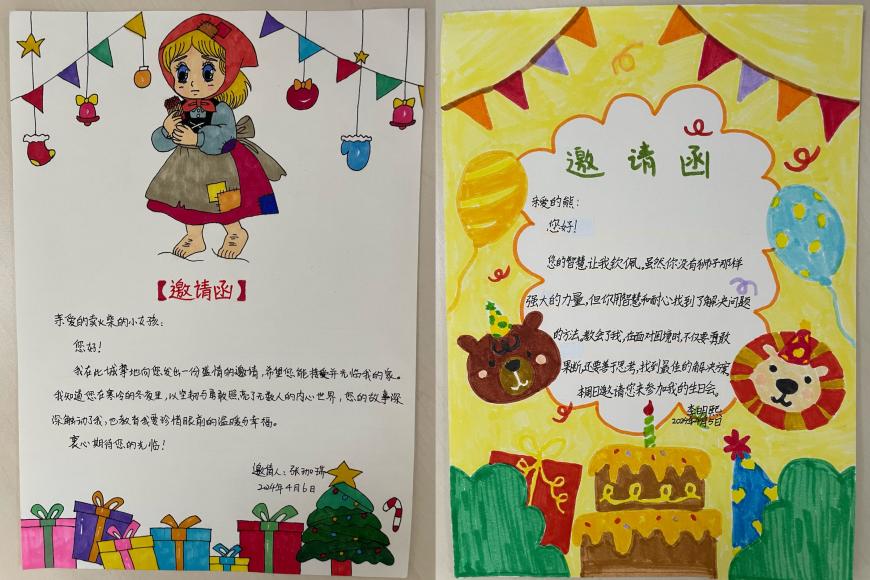 【邀请函】
亲爱的卖火柴的小女孩：
您好！
我在此诚挚地向您发出一份盛情的邀请，希望您能接受并光临我的家。
我知道您在寒冷的冬夜里，以坚韧与勇敢照亮了无数人的内心世界，您的故事深
深触动了我，也教育我要珍惜眼前的温暖与幸福。
衷心期待您的光临！
邀请人：张珈瑞
2024年4月6日
邀请函
亲爱的熊：
您好！
您的智慧让我钦佩。虽然你没有狮子那样
强大的力量，但你用智慧和耐心找到了解决问题
的方法，教会了我，在面对困境时，不仅要勇敢
果断，还要善于思考，找到最佳的解决方案
本周日邀请您来参加我的生日会。
李明熙
2024年4月5日